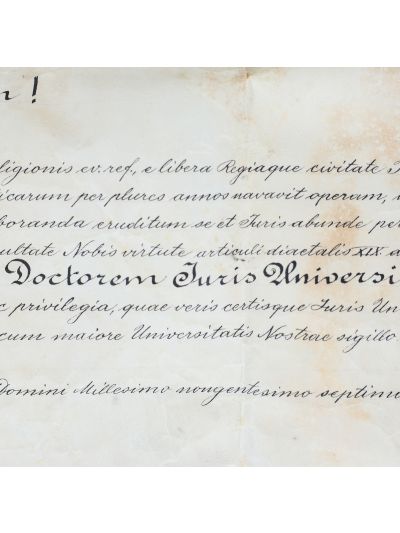 !
ligionis ev. ref., e libera Regiaque civitate
icarum per plures annos navavit operam,
boranda eruditum se et Iuris abunde per
ultate Nobis virtute articuli diaetalis XIX a
Doctorem Iuris Universi
c privilegia, quae veris certisque Iuris Un
cum maiore Universitatis Nostrae sigillo
Domini Millesimo nongentesimo septimo